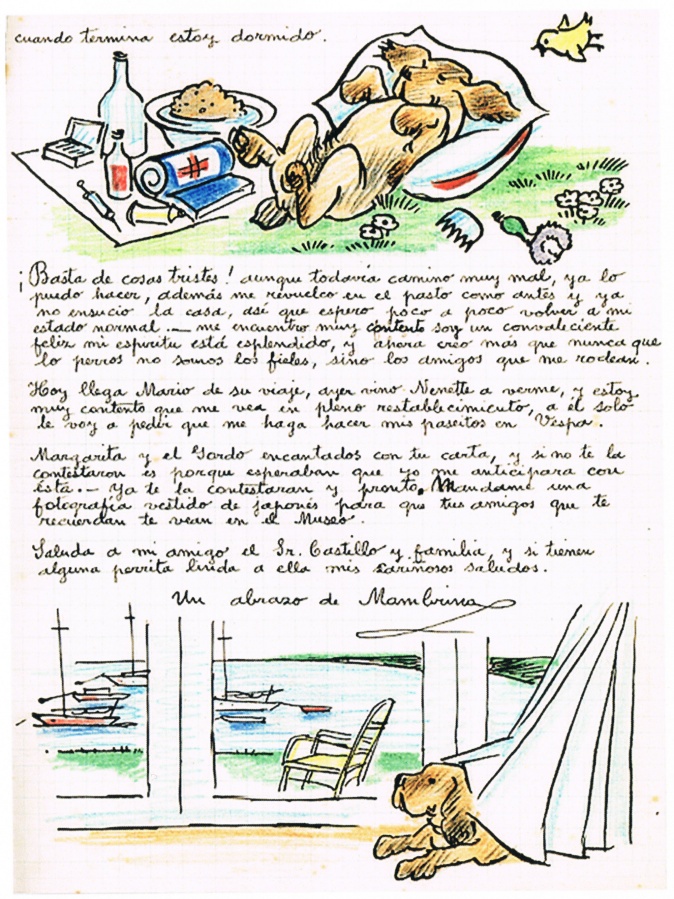 cuando termina estoy dormido.
¡Basta de cosas tristes! aunque todavía camino muy mal, ya lo
puedo hacer, además me revuelco en el pasto como antes y ya
no ensucio la casa, así que espero poco a poco volver a mi
estado normal.— me encuentro muy contento soy un convaleciente
feliz mi espiritu está esplendido, y ahora creo más que nunca que
lo perros no somos los fieles, sino los amigos que me rodean.
Hoy llega Mario de su viaje, ayer vino Nenette a verme, y estoy
muy contento que me vea en pleno restablecimiento, a él solo
le voy a pedir que me haga hacer mis paseitos en Vespa.
Margarita y el Gordo encantados con tu carta, y si no te la
contestaron es porque esperaban que yo me anticipara con
ésta.— Ya te la contestaran y pronto. Mandame una
fotografía vestido de japonés para que tus amigos que te
recuerdan te vean en el Museo.
Saluda a mi amigo el Sr. Castillo y familia, y si tienen
alguna perrita linda a ella mis cariñosos saludos.
Un abrazo de Mambrina